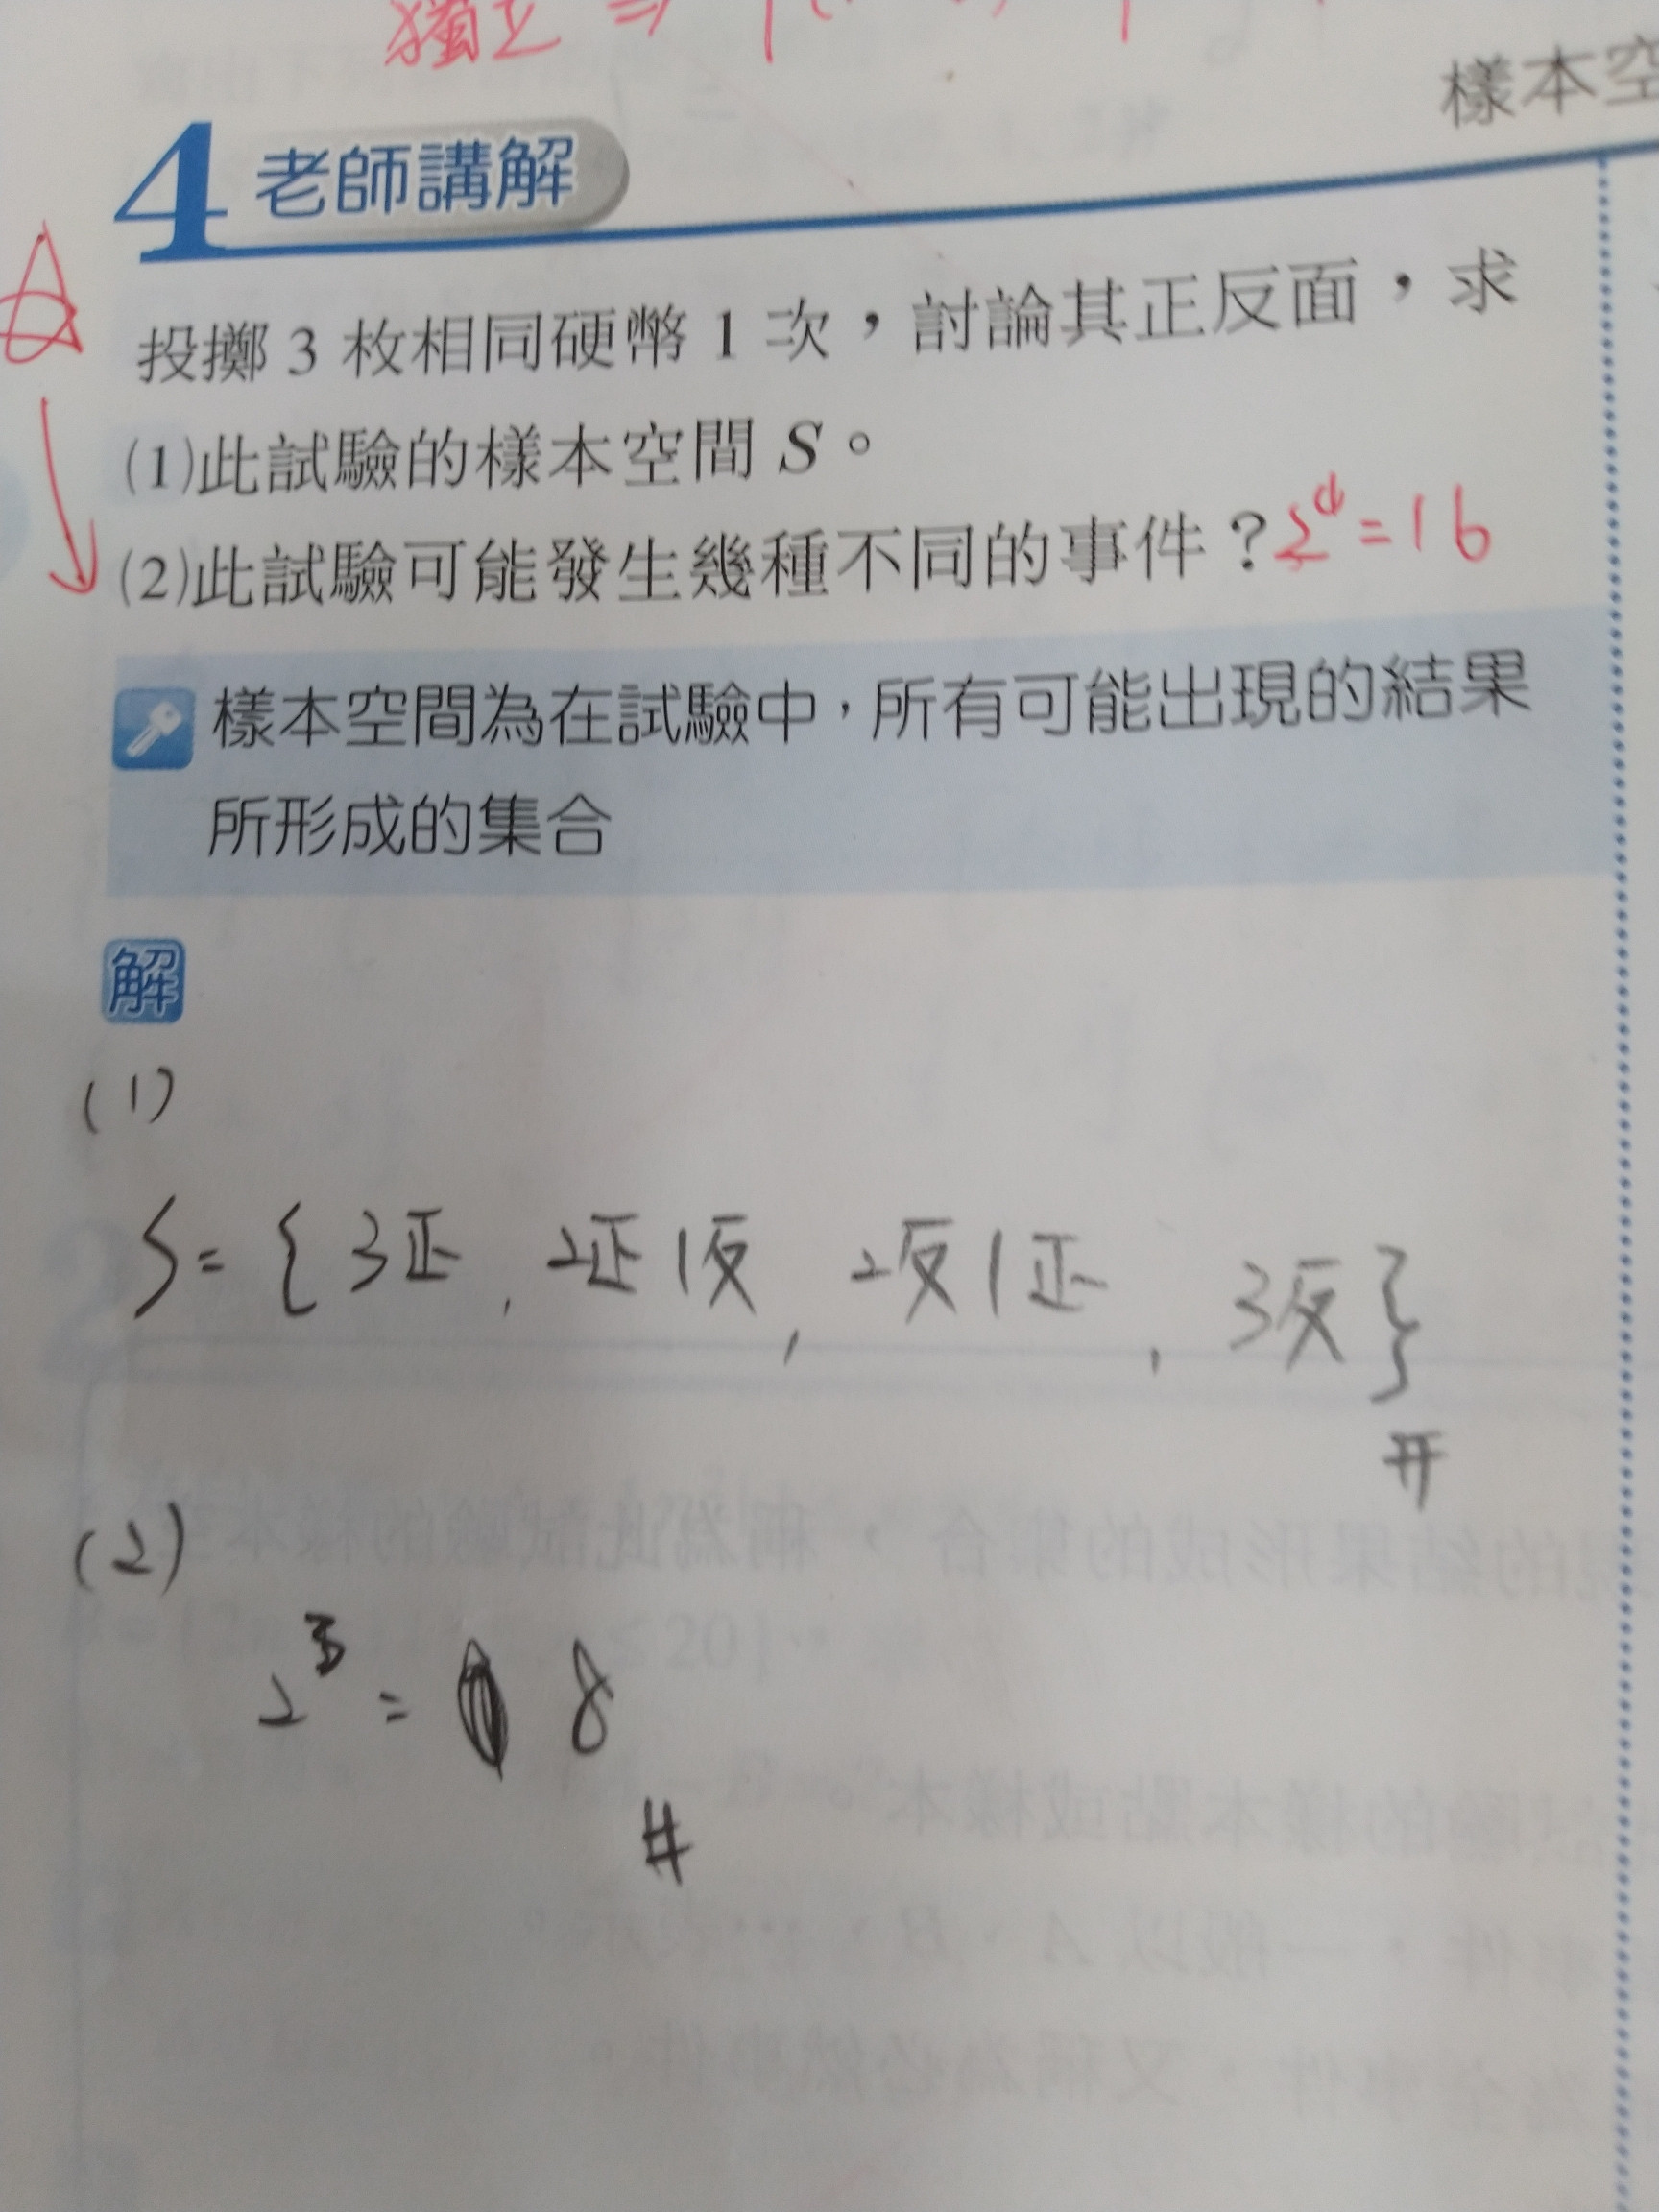 獨立 ⇒
樣本空
4 老師講解
投擲 3 枚相同硬幣 1 次,討論其正反面,求
(1)此試驗的樣本空間 S。
(2)此試驗可能發生幾種不同的事件?2⁴=16
樣本空間為在試驗中,所有可能出現的結果
所形成的集合
解
(1)
S={3正, 2正1反, 2反1正, 3反}
#
(2)
2³= 8
#